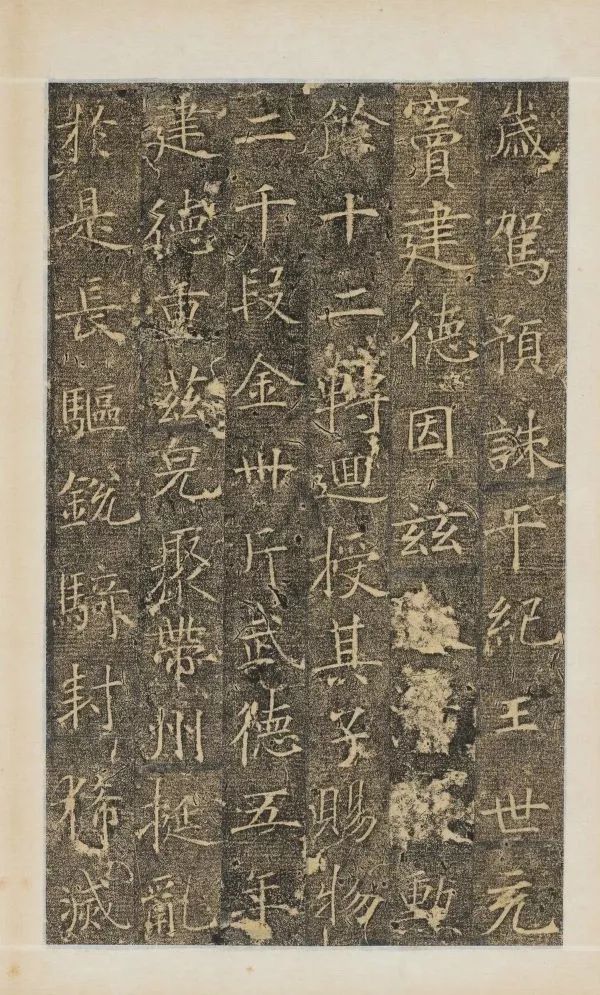 歲駕預誅干紀王世充
竇建德因兹勲
餘十二轉迴授其子賜物
二千段金卌斤武德五年
建德重兹兇聚帶州挺亂
於是長驅銳騎封豨滅